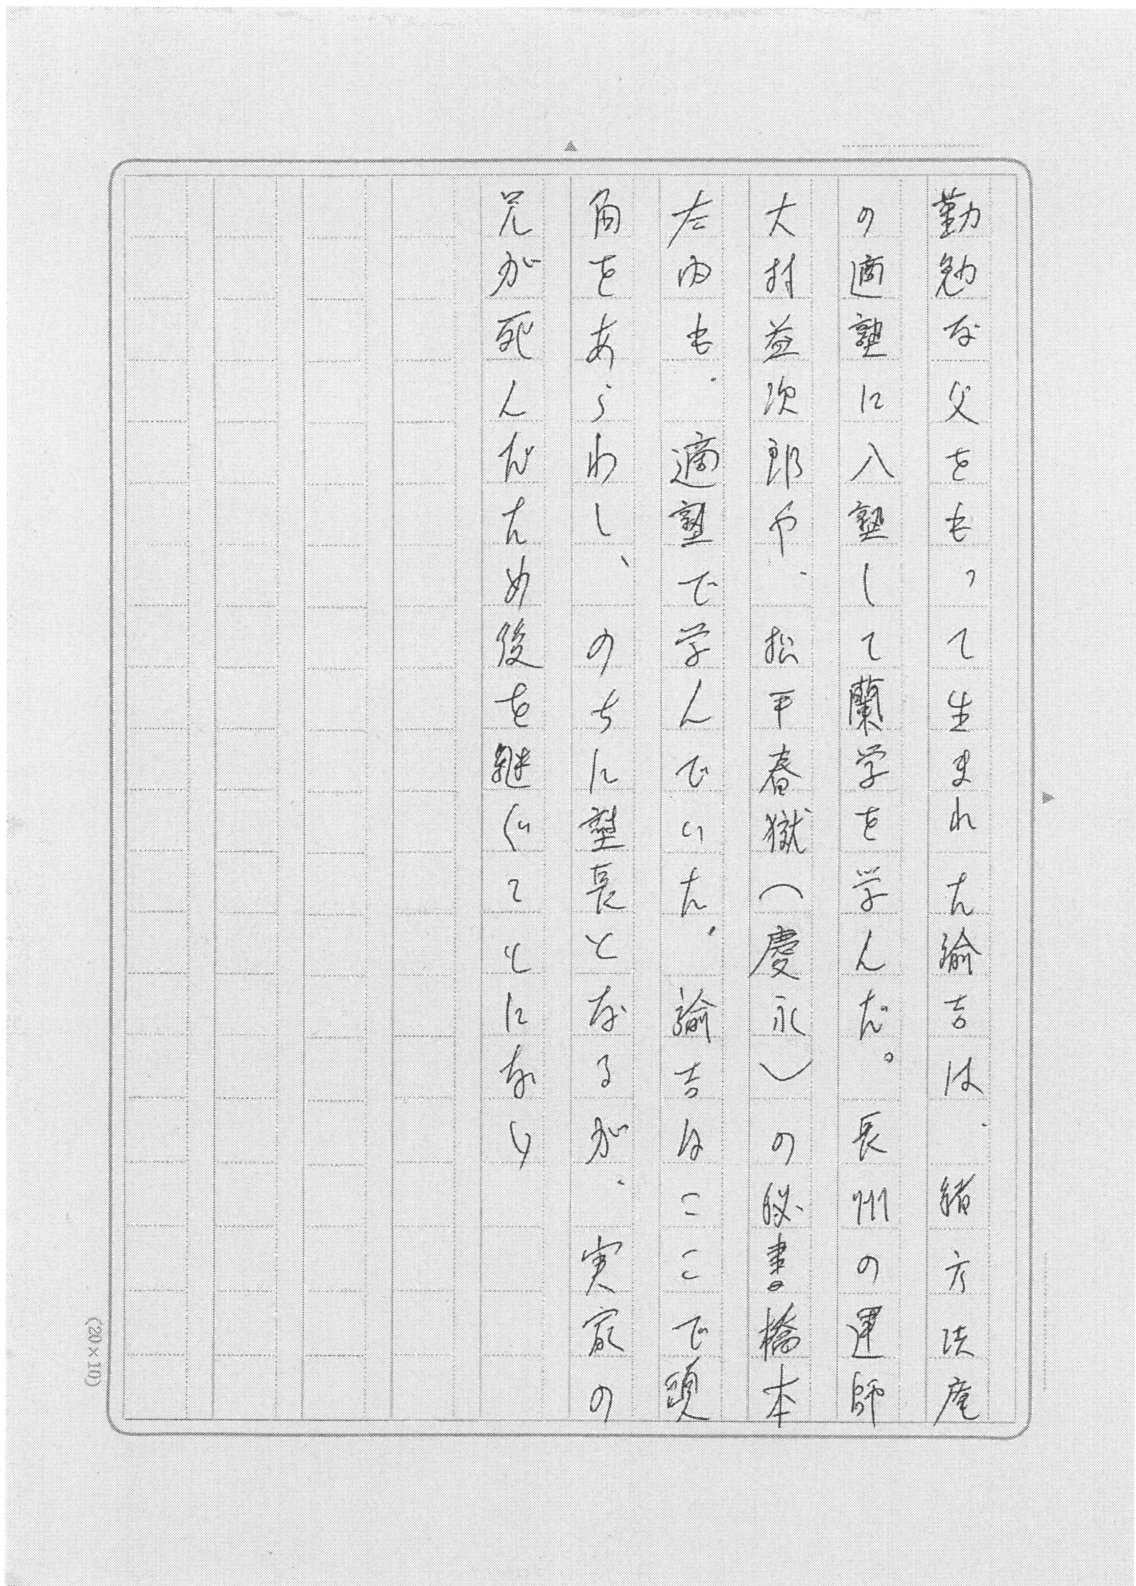 勤勉な父をもって生まれた諭吉は、緒方洪庵
の適塾に入塾して蘭学を学んだ。長州の軍師
大村益次郎や、松平春嶽（慶永）の秘書橋本
左内も、適塾で学んでいた。諭吉はここで頭
角をあらわし、のちに塾長となるが、実家の
兄が死んだため後を継ぐことになり
(20×10)